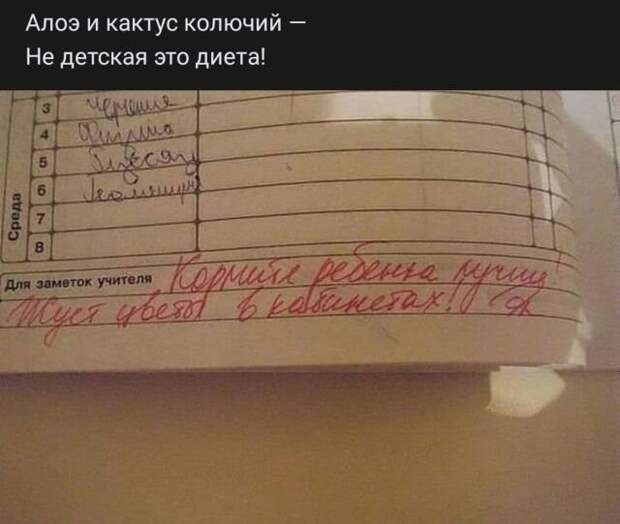 Алоэ и кактус колючий —
Не детская это диета!
3 Черчение
4 Физика
5
6 Геометрия
7
8
Среда
Для заметок учителя Кормите ребенка лучше!
Жуёт цветы в кабинетах!